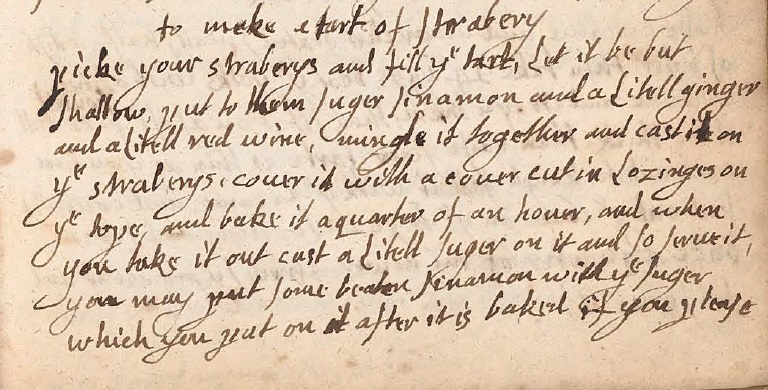 to make a tart of strabery
picke your straberys and fill yᵉ tart, Let it be but
shallow, put to them suger sinamon and a Litell ginger
and a Litell red wine, mingle it together and cast it on
yᵉ straberys. couer it with a couer cut in Lozinges on
yᵉ tope, and bake it a quarter of an houer, and when
you take it out cast a Litell suger on it and so serue it,
you may put some beaten sinamon with yᵉ suger
which you put on it after it is baked if you please